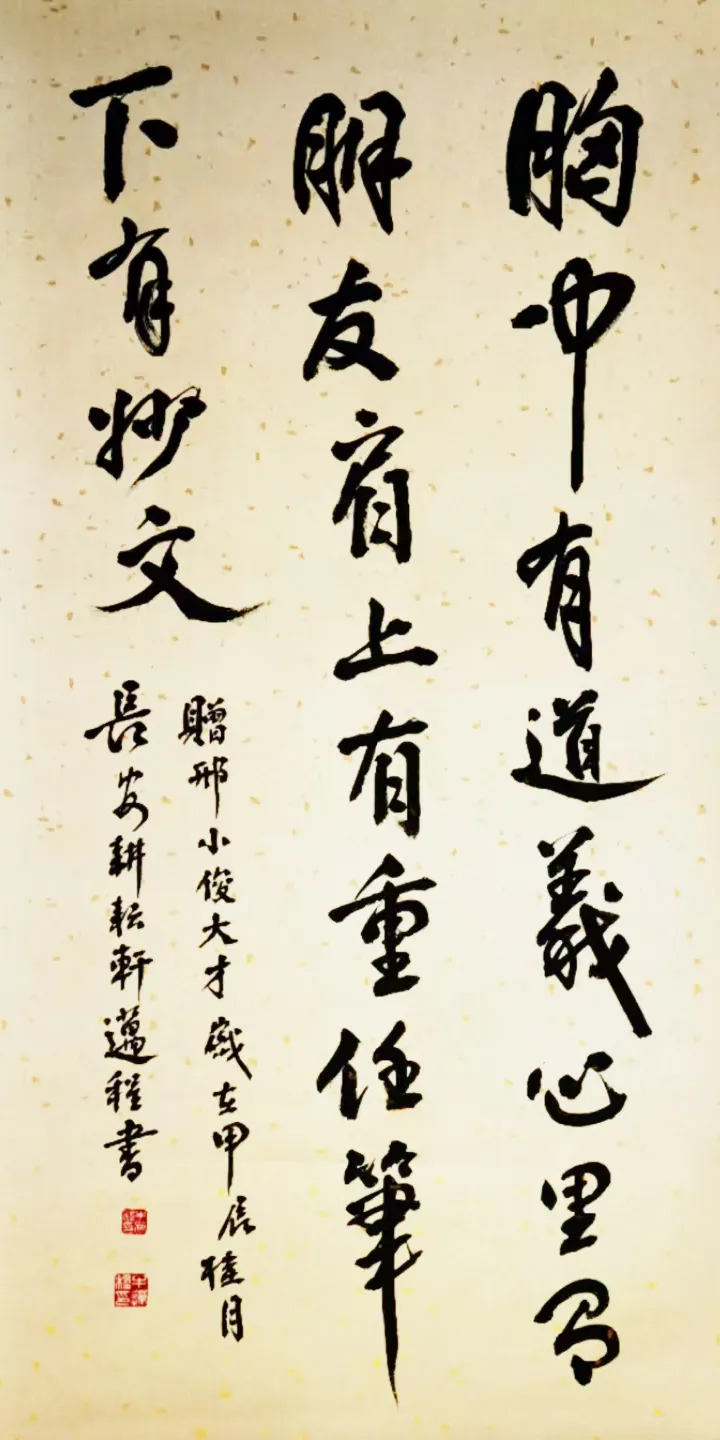 胸中有道義心里有
朋友肩上有重任筆
下有妙文
贈邢小俊大才歲在甲辰睦月
長安耕耘軒邁程書